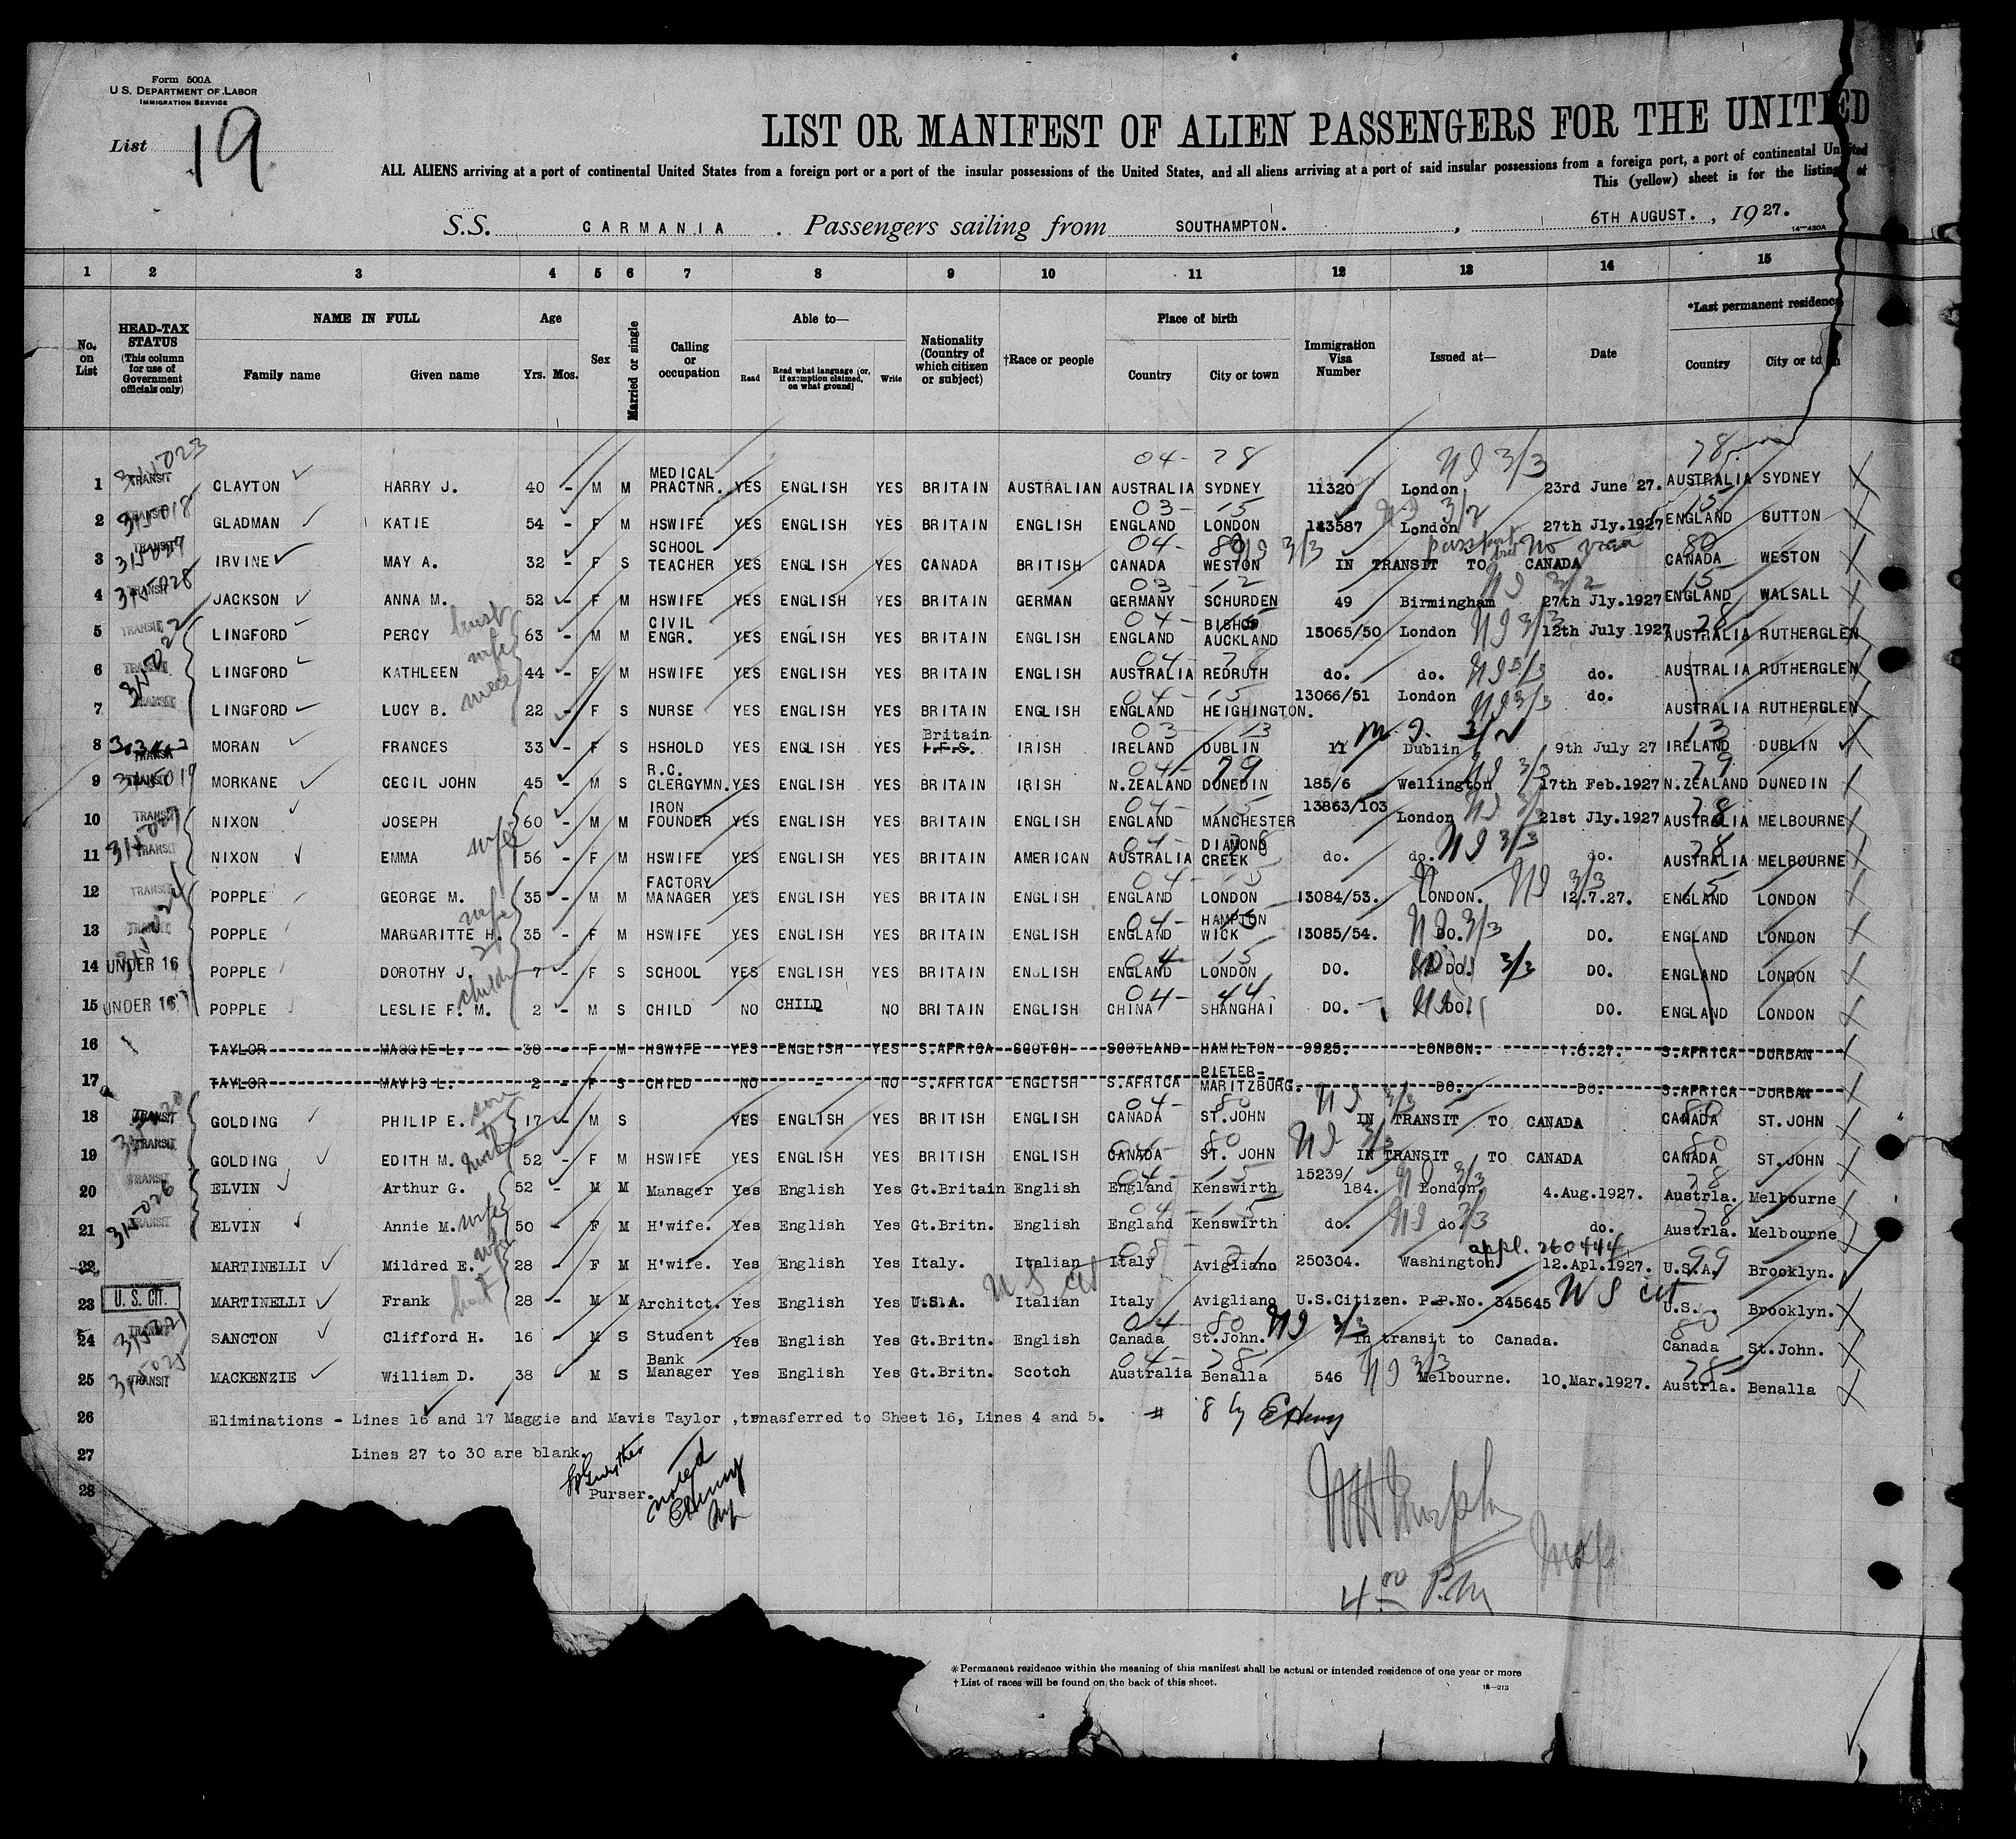 Form 500A
U.S. DEPARTMENT OF LABOR
IMMIGRATION SERVICE
List 19
LIST OR MANIFEST OF ALIEN PASSENGERS FOR THE UNITED
ALL ALIENS arriving at a port of continental United States from a foreign port or a port of the insular possessions of the United States, and all aliens arriving at a port of said insular possessions from a foreign port, a port of continental United
This (yellow) sheet is for the listing of
S.S. CARMANIA . Passengers sailing from SOUTHAMPTON. , 6TH AUGUST. , 1927.
14—430A
1 2 3 4 5 6 7 8 9 10 11 12 13 14 15
No. on List
HEAD-TAX STATUS (This column for use of Government officials only)
NAME IN FULL Family name Given name
Age Yrs. Mos.
Sex
Married or single
Calling or occupation
Able to— Read Read what language (or, if exemption claimed, on what ground) Write
Nationality (Country of which citizen or subject)
†Race or people
Place of birth Country City or town
Immigration Visa Number
Issued at—
Date
*Last permanent residence Country City or town
04- 78 NI 3/3 78
1 TRANSIT CLAYTON HARRY J. 40 - M M MEDICAL PRACTNR. YES ENGLISH YES BRITAIN AUSTRALIAN AUSTRALIA SYDNEY 11320 London 23rd June 27. AUSTRALIA SYDNEY
03- 15 3/2 15
2 315018 GLADMAN KATIE 54 - F M HSWIFE YES ENGLISH YES BRITAIN ENGLISH ENGLAND LONDON 143587 London 27th Jly.1927 ENGLAND SUTTON
04- 80 NI 3/3 no visa 80
3 TRANSIT IRVINE MAY A. 32 - F S SCHOOL TEACHER YES ENGLISH YES CANADA BRITISH CANADA WESTON IN TRANSIT TO CANADA CANADA WESTON
03- 12 NI 3/2 15
4 315028 TRANSIT JACKSON ANNA M. 52 - F M HSWIFE YES ENGLISH YES BRITAIN GERMAN GERMANY SCHURDEN 49 Birmingham 27th Jly.1927 ENGLAND WALSALL
5 TRANSIT LINGFORD PERCY husb 63 - M M CIVIL ENGR. YES ENGLISH YES BRITAIN ENGLISH 04- ENGLAND BISHOP AUCKLAND 13065/50 London NI 3/3 12th July 1927 78 AUSTRALIA RUTHERGLEN
6 TRANSIT LINGFORD KATHLEEN wife 44 - F M HSWIFE YES ENGLISH YES BRITAIN ENGLISH 04- 78 AUSTRALIA REDRUTH do. do. NI 3/3 do. AUSTRALIA RUTHERGLEN
7 TRANSIT LINGFORD LUCY B. niece 22 - F S NURSE YES ENGLISH YES BRITAIN ENGLISH 04- 15 ENGLAND HEIGHINGTON. 13066/51 London NI 3/3 do. AUSTRALIA RUTHERGLEN
8 TRANSIT MORAN FRANCES 33 - F S HSHOLD YES ENGLISH YES Britain I.F.S. IRISH 03- 13 IRELAND DUBLIN 11 Dublin 3/2 9th July 27 13 IRELAND DUBLIN
9 315019 MORKANE CECIL JOHN 45 - M S R.C. CLERGYMN. YES ENGLISH YES BRITAIN IRISH 04- 79 N.ZEALAND DUNEDIN 185/6 Wellington NI 3/3 17th Feb.1927 79 N.ZEALAND DUNEDIN
10 TRANSIT NIXON JOSEPH 60 - M M IRON FOUNDER YES ENGLISH YES BRITAIN ENGLISH 04- 15 ENGLAND MANCHESTER 13863/103 London NI 3/3 21st Jly.1927 78 AUSTRALIA MELBOURNE
11 TRANSIT 315027 NIXON EMMA wife 56 - F M HSWIFE YES ENGLISH YES BRITAIN AMERICAN 04- 78 AUSTRALIA DIAMOND CREEK do. do. NI 3/3 do. 78 AUSTRALIA MELBOURNE
12 TRANSIT POPPLE GEORGE M. 35 - M M FACTORY MANAGER YES ENGLISH YES BRITAIN ENGLISH 04- 15 ENGLAND LONDON 13084/53. LONDON. NI 3/3 12.7.27. 15 ENGLAND LONDON
13 TRANSIT POPPLE MARGARITTE H. wife 35 - F M HSWIFE YES ENGLISH YES BRITAIN ENGLISH 04- 15 ENGLAND HAMPTON WICK 13085/54. DO. NI 3/3 DO. ENGLAND LONDON
14 UNDER 16 POPPLE DOROTHY J. 2 7 - F S SCHOOL YES ENGLISH YES BRITAIN ENGLISH 04 15 ENGLAND LONDON DO. DO. 3/3 DO. ENGLAND LONDON
15 UNDER 16 POPPLE LESLIE F. M. children 2 - M S CHILD NO CHILD NO BRITAIN ENGLISH 04- 44 CHINA SHANGHAI DO. DO. DO. ENGLAND LONDON
16 TAYLOR MAGGIE L. 30 - F M HSWIFE YES ENGLISH YES S.AFRICA SCOTCH SCOTLAND HAMILTON 9925. LONDON. 1.6.27. S.AFRICA DURBAN
17 TAYLOR MAVIS L. 2 - F S CHILD NO - NO S.AFRICA ENGLISH S.AFRICA PIETER-MARITZBURG. DO. DO. S.AFRICA DURBAN
18 TRANSIT GOLDING PHILIP E. son 17 - M S YES ENGLISH YES BRITISH ENGLISH 04- 80 CANADA ST.JOHN NI 3/3 IN TRANSIT TO CANADA 80 CANADA ST.JOHN
19 TRANSIT GOLDING EDITH M. moth 52 - F M HSWIFE YES ENGLISH YES BRITISH ENGLISH 04- 80 CANADA ST. JOHN NI 3/3 IN TRANSIT TO CANADA 80 CANADA ST.JOHN
20 TRANSIT ELVIN Arthur G. 52 - M M Manager Yes English Yes Gt.Britain English 04- 15 England Kenswirth 15239/184. London. NI 3/3 4.Aug.1927. 78 Austrla. Melbourne
21 315026 TRANSIT ELVIN Annie M. wife 50 - F M H'wife. Yes English Yes Gt.Britn. English 04- 15 England Kenswirth do. NI do. 3/3 do. 78 Austrla. Melbourne
appl. 260444
22 MARTINELLI Mildred E. wife 28 - F M H'wife. Yes English Yes Italy. Italian 08- 21 Italy Avigliano 250304. Washington. 12.Apl.1927. 99 U.S.A. Brooklyn.
23 U.S. CIT. MARTINELLI Frank husb 28 - M M Architct. Yes English Yes U.S.A. U S cit Italian Italy Avigliano U.S.Citizen. P.P.No. 345645 U S cit U.S. Brooklyn.
24 TRANSIT SANCTON Clifford H. 16 - M S Student Yes English Yes Gt.Britn. English 04- 80 Canada St.John. NI 3/3 In transit to Canada. 80 Canada St.John.
25 315025 TRANSIT MACKENZIE William D. 38 M S Bank Manager Yes English Yes Gt.Britn. Scotch 04- 78 Australia Benalla 546 NI 3/3 Melbourne. 10.Mar.1927. 78 Austrla. Benalla
26 Eliminations - Lines 16 and 17 Maggie and Mavis Taylor ,tranasferred to Sheet 16, Lines 4 and 5.
27 Lines 27 to 30 are blank.
28 Purser. noted
4 00 P.M
*Permanent residence within the meaning of this manifest shall be actual or intended residence of one year or more
†List of races will be found on the back of this sheet.
14—213